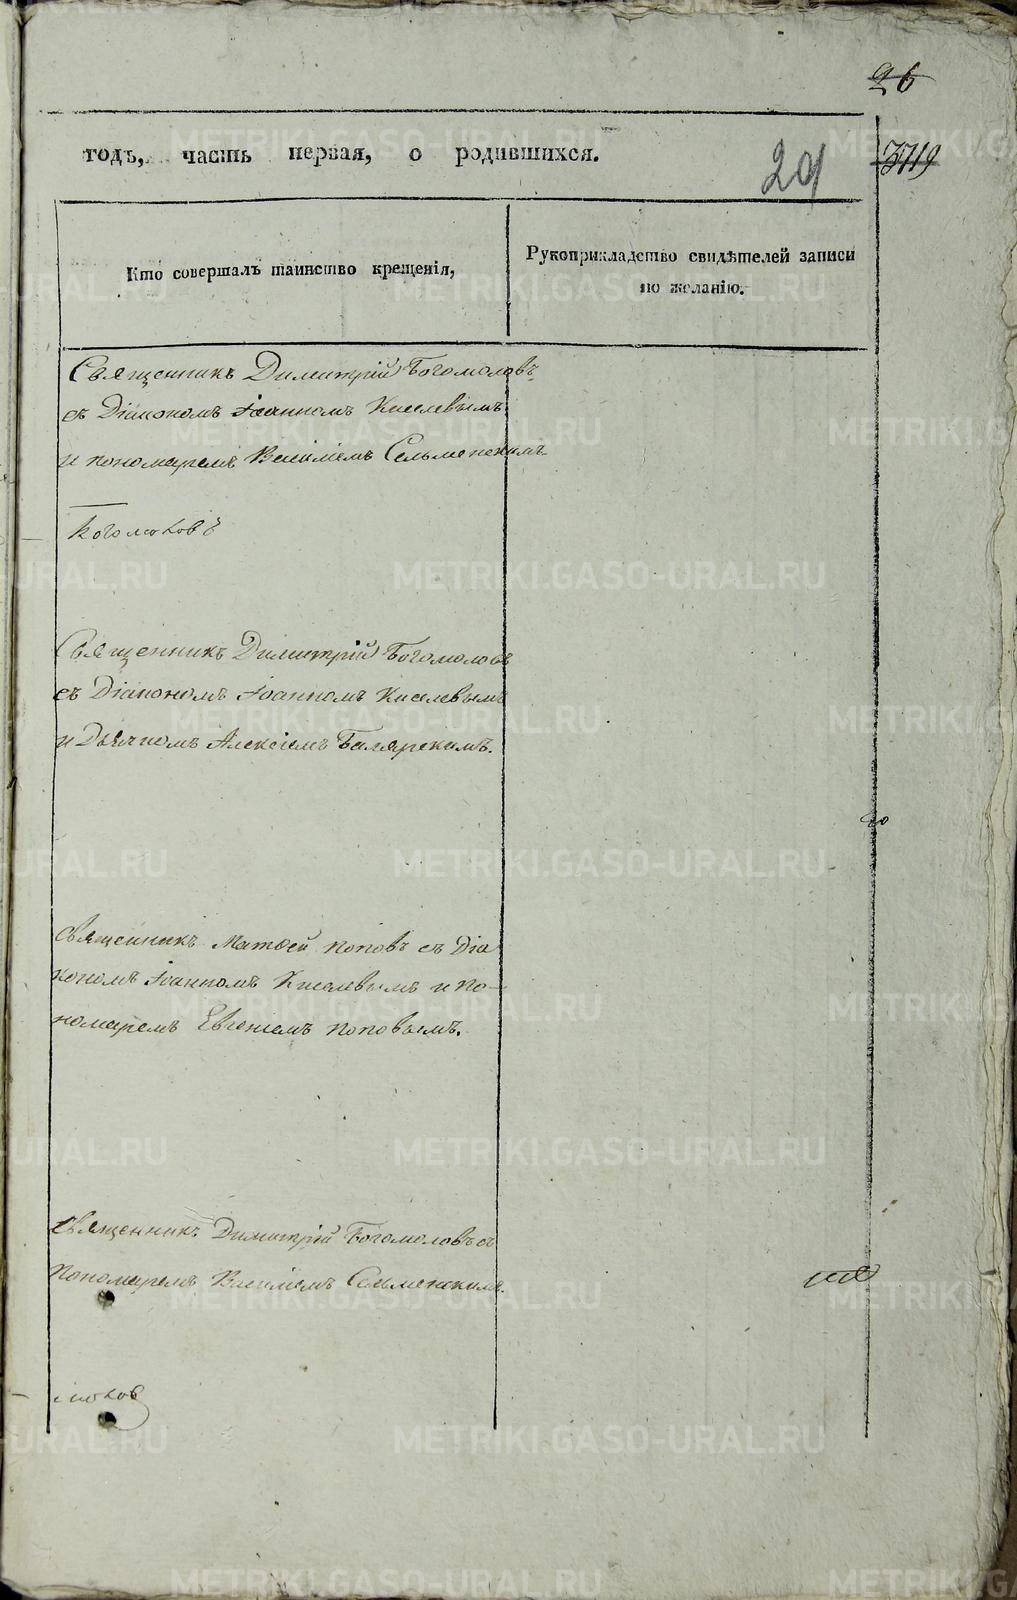 26
годъ, часть первая, о родившихся.
29
3719
Кто совершалъ таинство крещенія,
Рукоприкладство свидѣтелей записи
по желанію.
Священникъ Димитрій Богомоловъ
съ Діакономъ Іоанномъ Киселевымъ
и пономаремъ Василіемъ Сельменскимъ
Священникъ Димитрій Богомоловъ
съ Діакономъ Іоанномъ Киселевымъ
и Дьячкомъ Алексіемъ
Священникъ Матѳей Поповъ съ Діа
кономъ Іоанномъ Киселевымъ и по-
номаремъ Евгеніемъ Поповымъ.
Священникъ Димитрій Богомоловъ съ
Пономаремъ Василіемъ Сельменскимъ.
METRIKI.GASO-URAL.RU